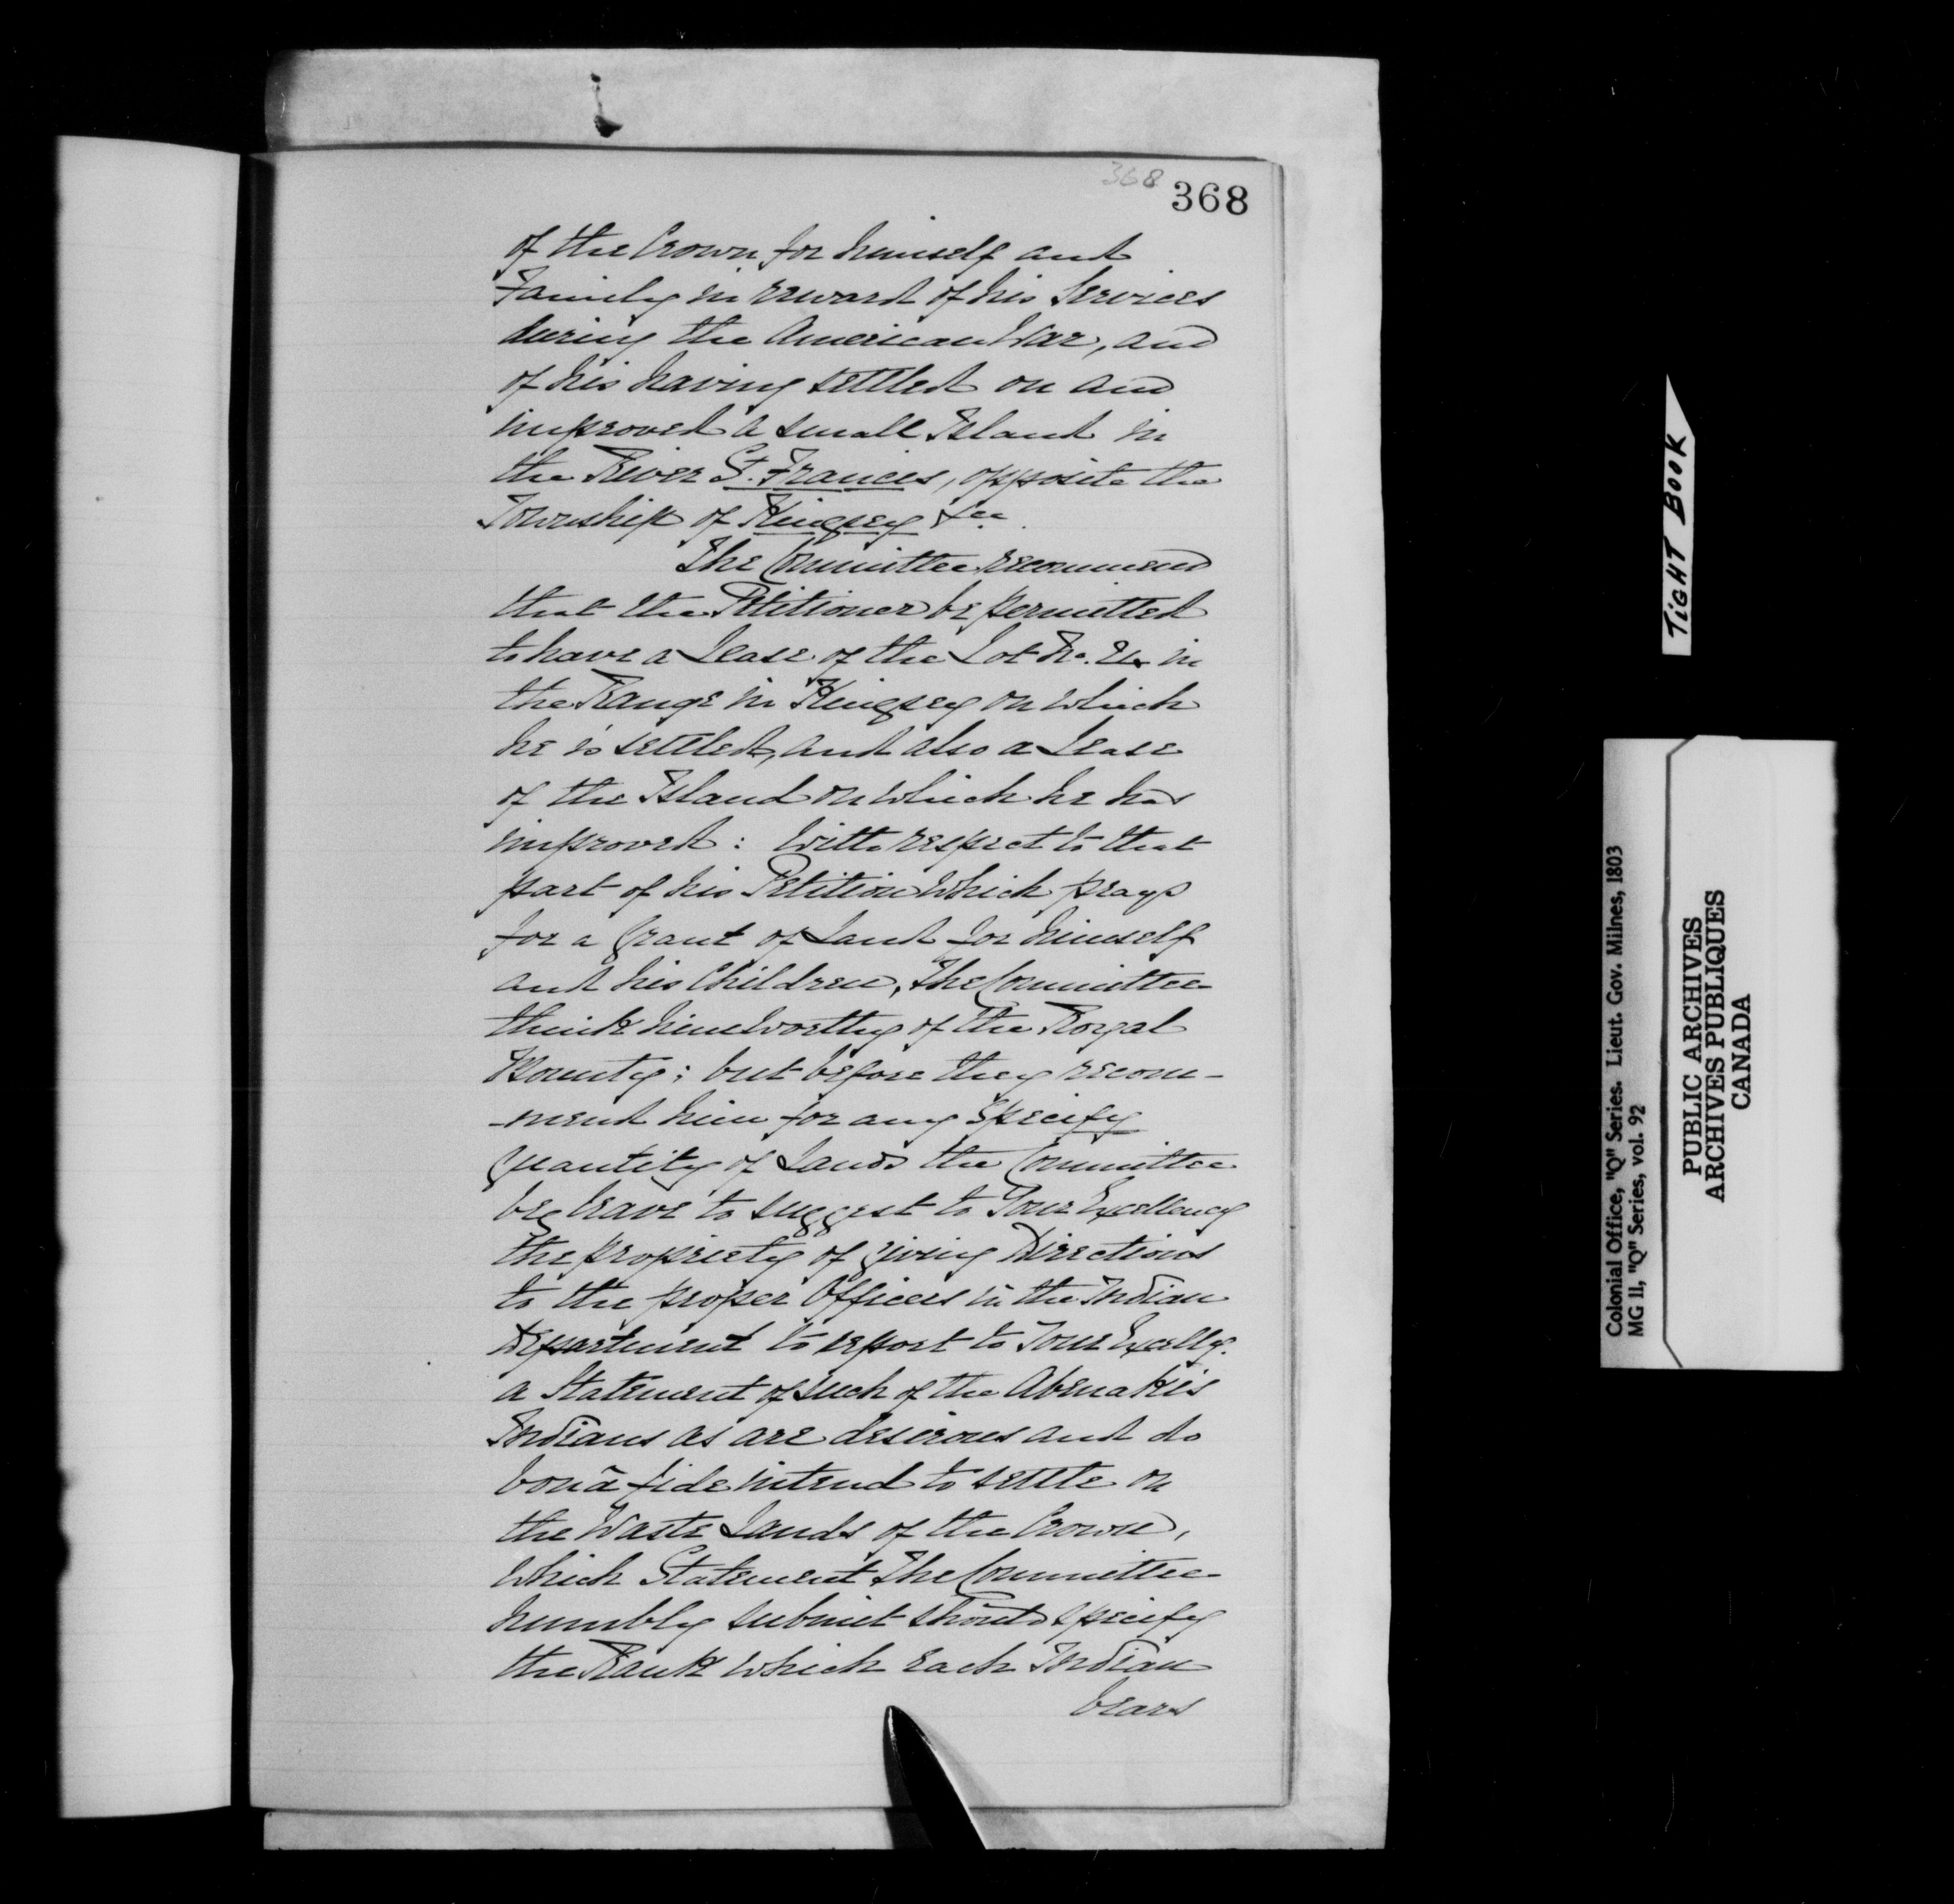 368
368
of the Crown for himself and
Family in reward of his Services
during the American War, and
of his having settled on and
improved a small Island in
the River St. Francis, opposite the
Township of Kingsey &ca.
The Committee recommend
that the Petitioner be permitted
to have a Lease of the Lot No. in
the Range in Kingsey on which
he is settled, and also a Lease
of the Island on which he has
improved : With respect to that
part of his Petition which prays
for a Grant of Land for himself
and his Children, The Committee
think him worthy of the Royal
Bounty; but before they recom-
-mend him for any specify
Quantity of Lands the Committee
beg leave to suggest to Your Excellency
the propriety of giving Directions
to the proper Officers in the Indian
Department to report to Your Excelly.
a Statement of such of the Abenakis
Indians as are desirous and do
bonâ fide intend to settle on
the Waste Lands of the Crown,
which Statement The Committee
humbly submit should specify
the Rank which each Indian
bears
TIGHT BOOK
Colonial Office, "Q" Series. Lieut. Gov. Milnes, 1803
MG 11, "Q" Series, vol. 92
PUBLIC ARCHIVES
ARCHIVES PUBLIQUES
CANADA